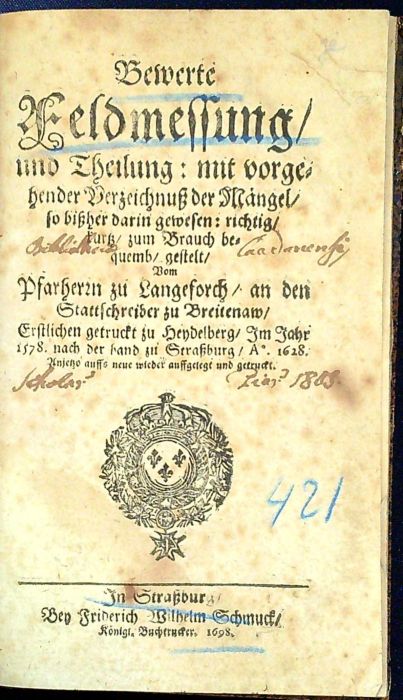 Bewerte
Feldmessung/
und Theilung: mit vorge⸗
hender Verzeichnuß der Mängel/
so bißher darin gewesen: richtig/
kurtz/ zum Brauch be⸗
quemb/ gestelt/
Vom
Pfarherrn zu Langeforch/ an den
Stattschreiber zu Breitenaw/
Erstlichen getruckt zu Heydelberg/ Im Jahr
1578. nach der hand zu Straßburg/ A°. 1628.
Anjetzo auffs neue wieder auffgelegt und getruckt.
1808.
421
In Straßburg/
Bey Friderich Wilhelm Schmuck/
Königl. Buchtrucker. 1698.